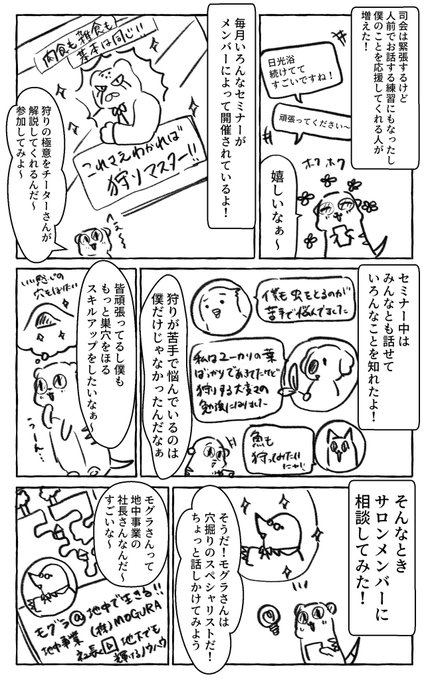 司会は緊張するけど
人前でお話する練習にもなったし
僕のことを応援してくれる人が
増えた!
日光浴
続けてて
すごいですね!
頑張ってください~
ホク ホク
嬉しいなぁ~
毎月いろんなセミナーが
メンバーによって開催されているよ!
肉食も雑食も
基本は同じ!!
これさえわかれば
狩りマスター!!
狩りの極意をチーターさんが
解説してくれるんだ~
参加してみよ~
セミナー中は
みんなとも話せて
いろんなことを知れたよ!
僕も虫をとるのが
苦手で悩んでました
私はユーカリの葉
ばっかりで
狩りする大変さの
勉強になりました
魚も
狩ってみたい
にゃ
狩りが苦手で悩んでいるのは
僕だけじゃなかったんだなぁ
いい感じの
穴をほりたい
皆頑張ってるし僕も
もっと巣穴をほる
スキルアップをしたいなぁ~
うーん…
そんなとき
サロンメンバーに
相談してみた!
そうだ!モグラさんは
穴掘りのスペシャリストだ!
ちょっと話しかけてみよう
モグラさんって
地中事業の
社長さんなんだ~
すごいな~
モグラ@地中で生きる!!
地中事業(株)MOGURA
社長 地下でも
輝けるノウハウ